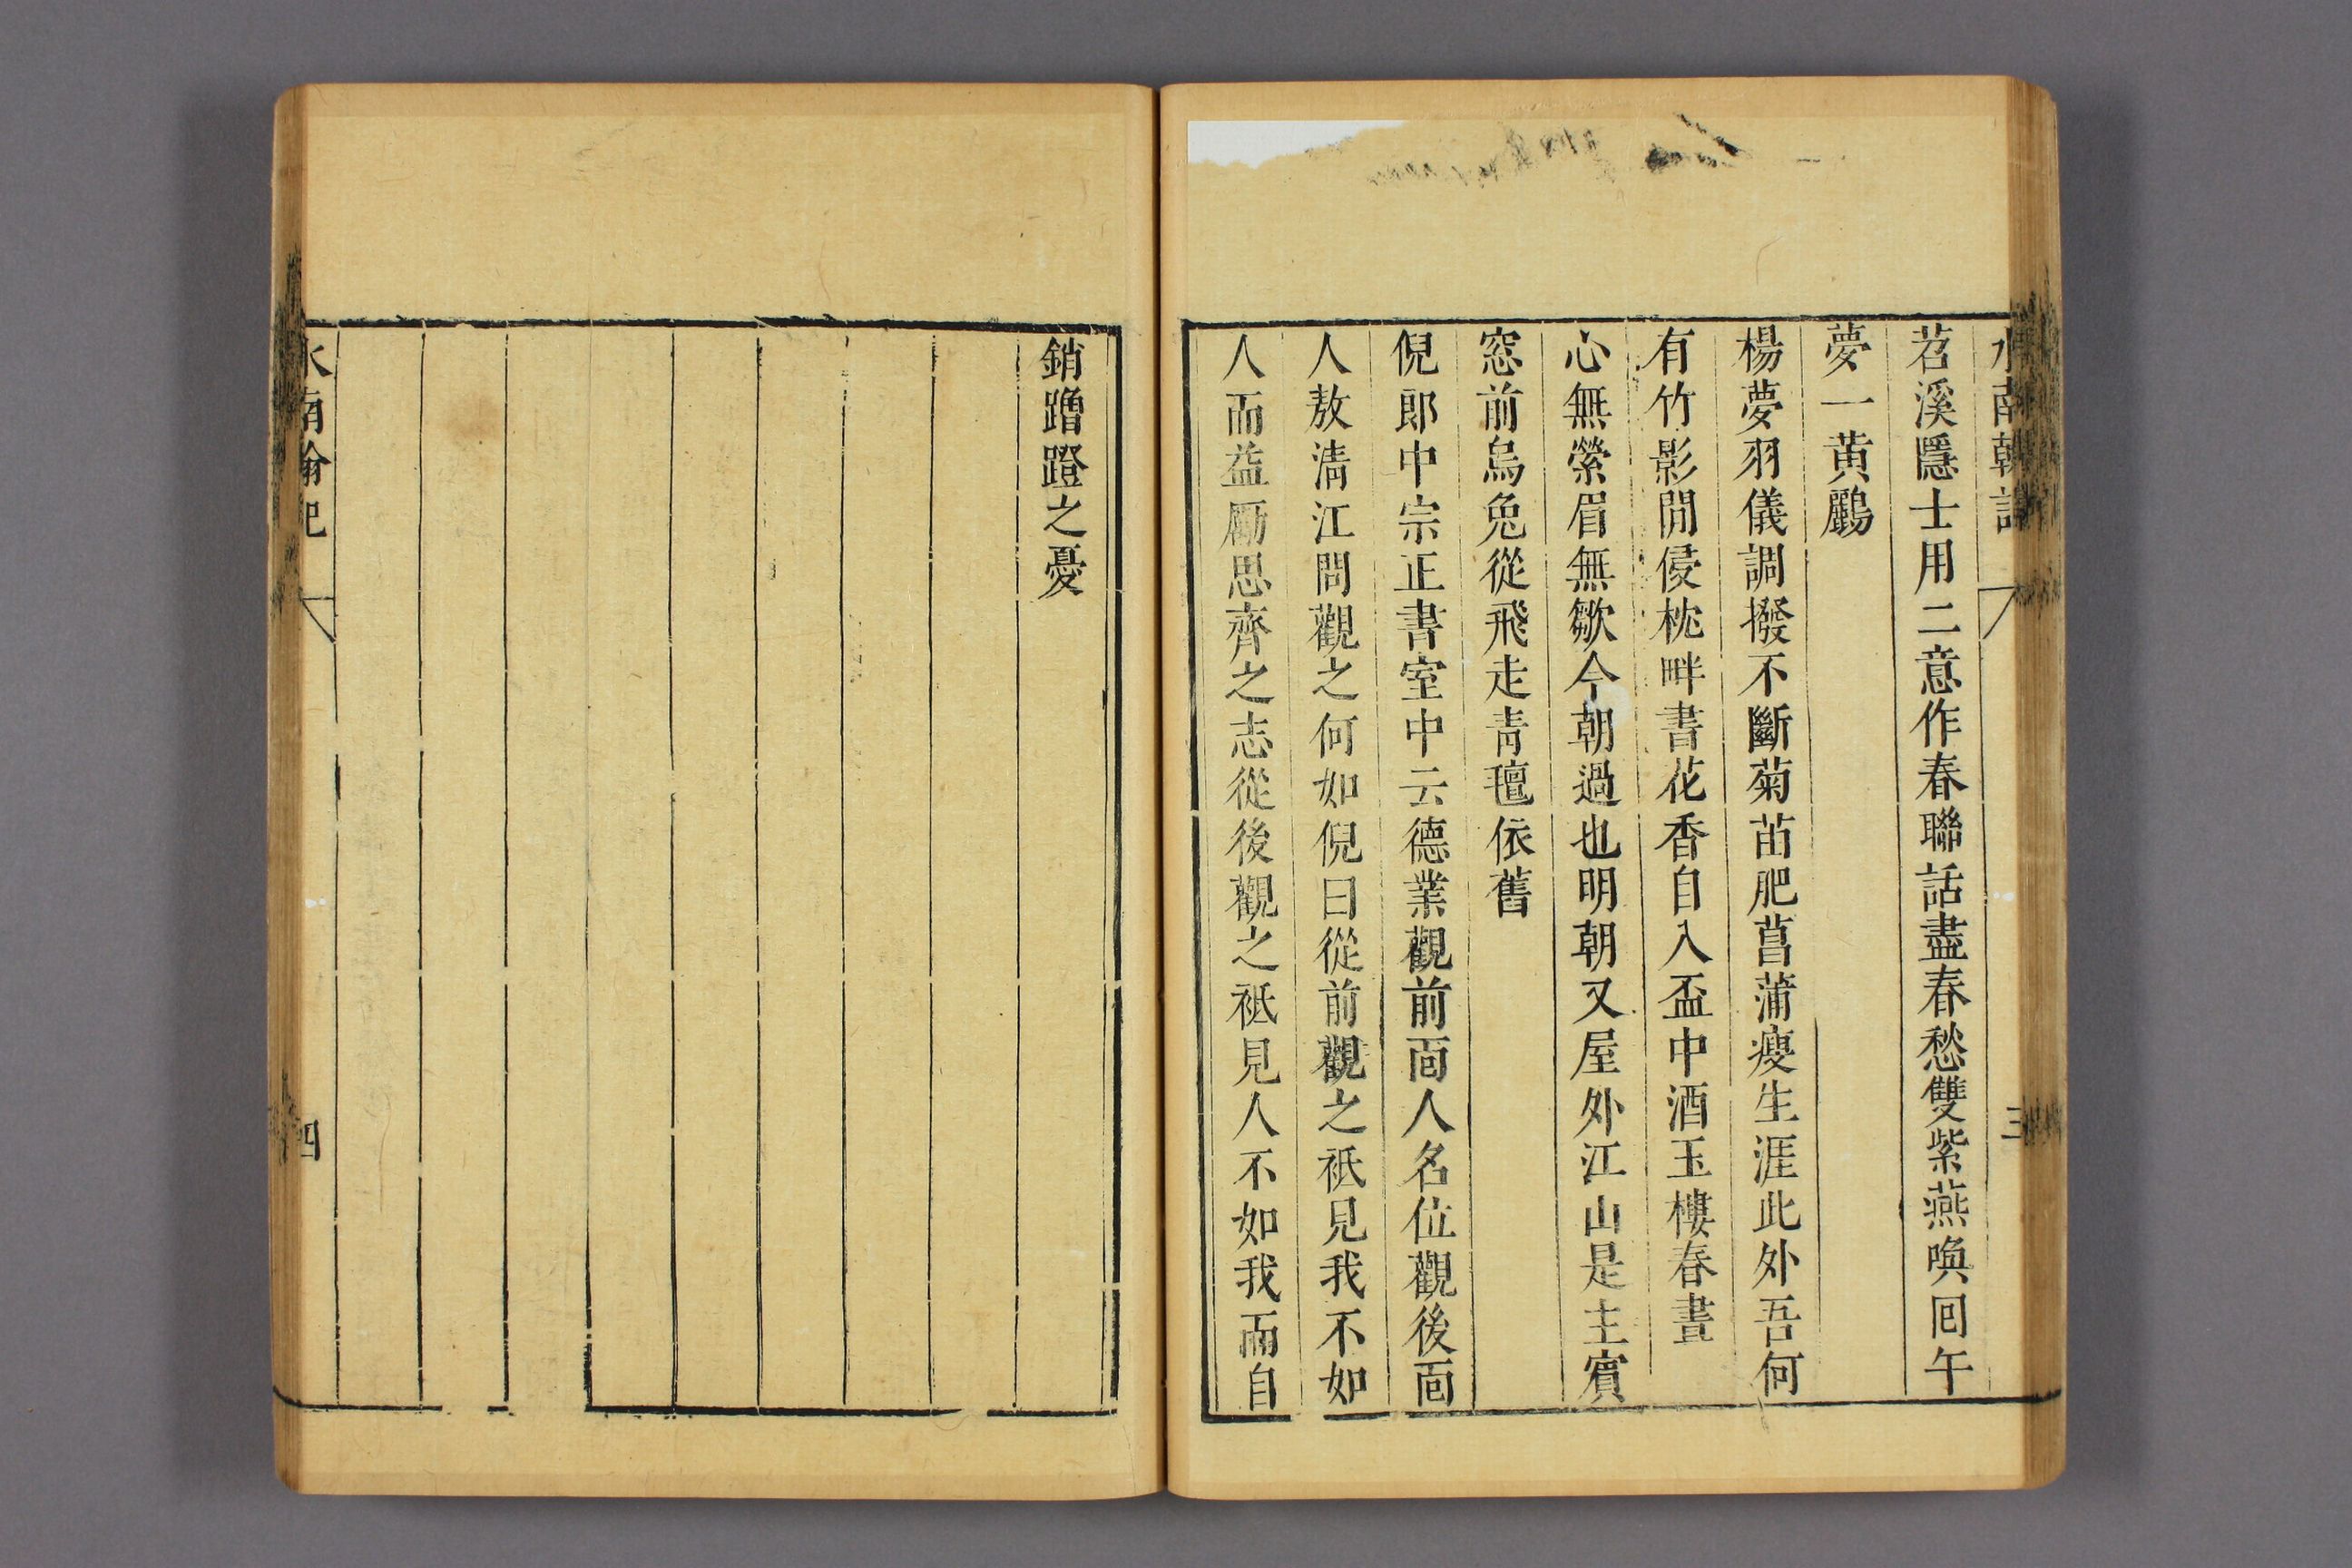 水南翰記
三
苕溪隱士用二意作春聯話盡春愁雙紫燕喚囘午
夢一黃鸝
楊夢羽儀調撥不斷菊苗肥菖蒲瘦生涯此外吾何
有竹影閒侵枕畔書花香自入盃中酒玉樓春晝
心無縈眉無皺今朝過也明朝又屋外江山是主賓
窓前烏兔從飛走靑氊依舊
倪郎中宗正書室中云德業觀前靣人名位觀後靣
人敖淸江問觀之何如倪曰從前觀之祗見我不如
人而益勵思齊之志從後觀之祗見人不如我而自
銷蹭蹬之憂
水南翰記
四